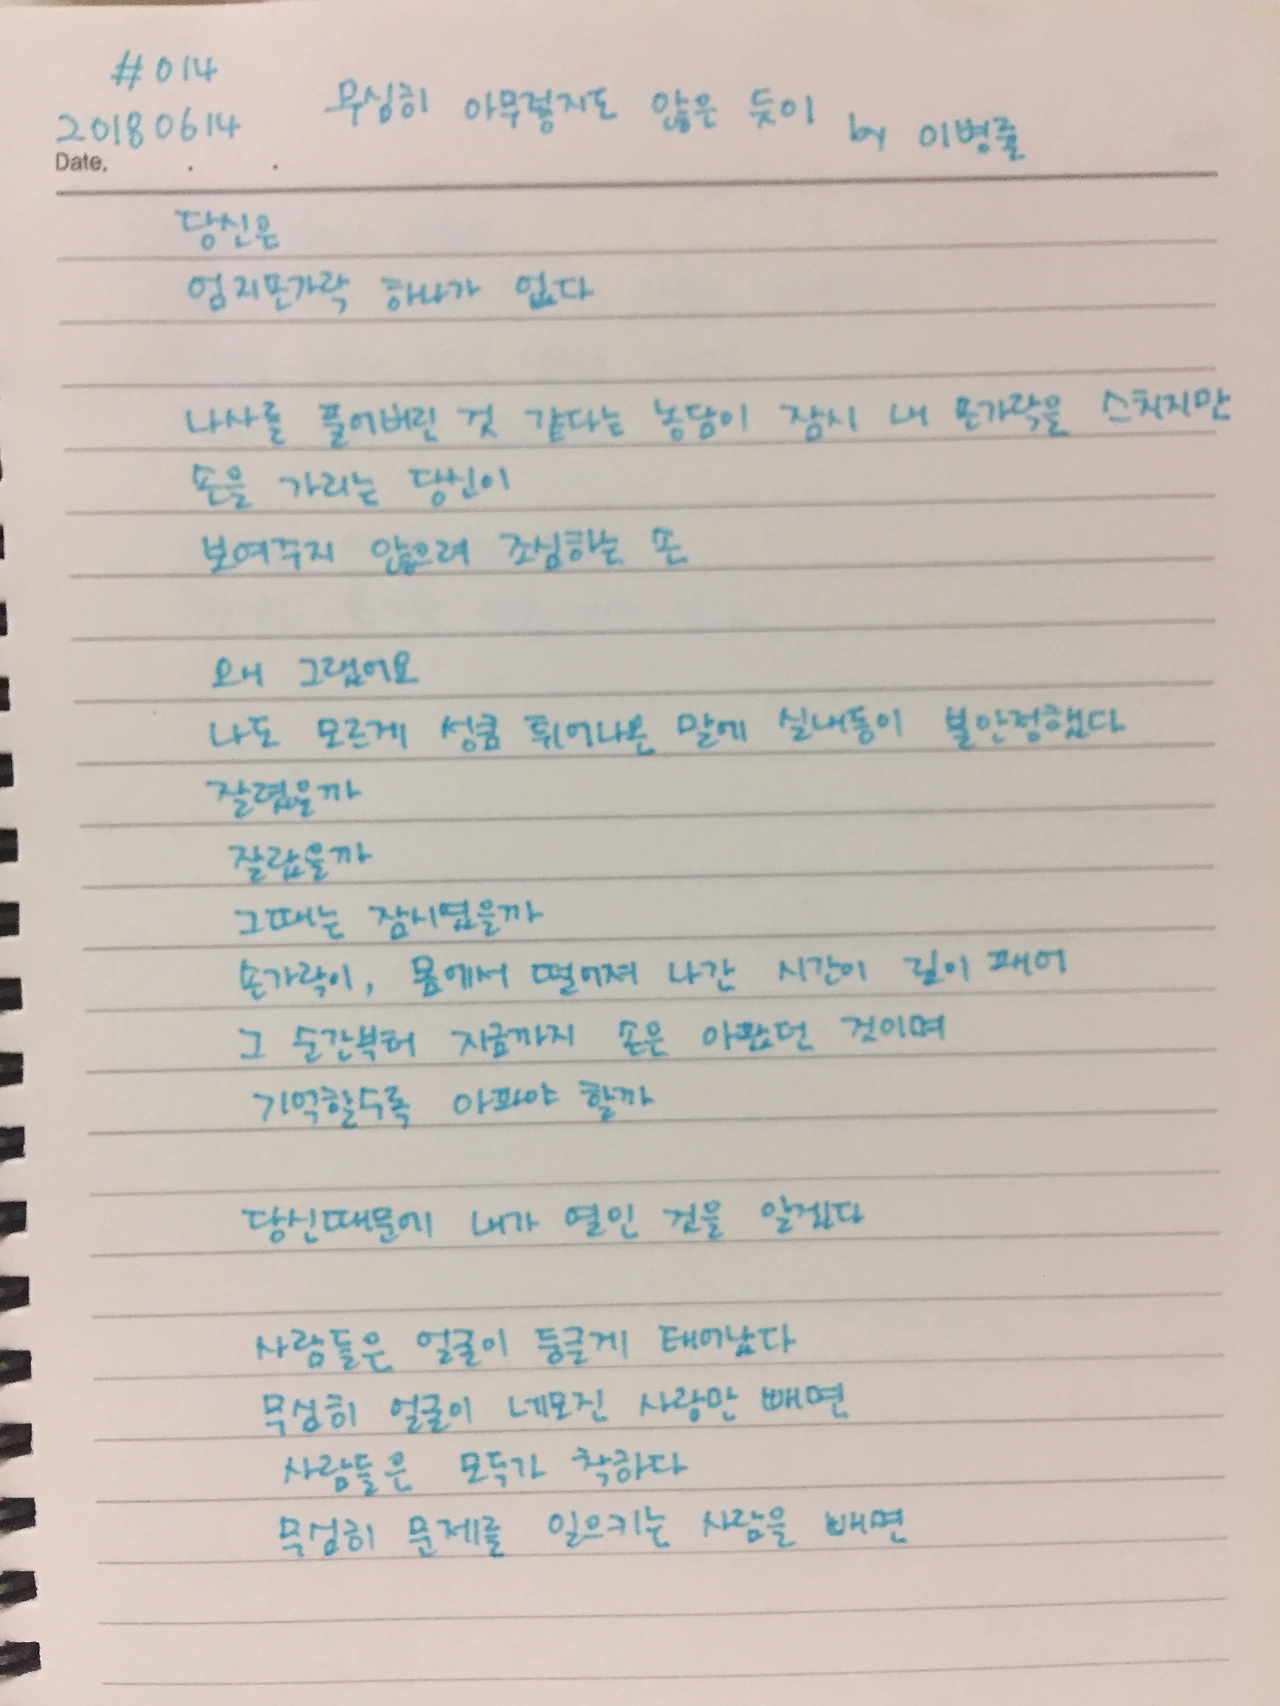 #014
20180614
무심히 아무렇지도 않은 듯이 by 이병률
Date. . .
당신은
엄지손가락 하나가 없다
나사를 풀어버린 것 같다는 농담이 잠시 내 손가락을 스치지만
손을 가리는 당신이
보여주지 않으려 조심하는 손
왜 그랬어요
나도 모르게 성큼 튀어나온 말에 실내등이 불안정했다
잘렸을까
잘랐을까
그때는 잠시였을까
손가락이, 몸에서 떨어져 나간 시간이 깊이 패어
그 순간부터 지금까지 손은 아팠던 것이며
기억할수록 아파야 할까
당신때문에 내가 열인 것을 알겠다
사람들은 얼굴이 둥글게 태어났다
무심히 얼굴이 네모진 사람만 빼면
사람들은 모두가 착하다
무심히 문제를 일으키는 사람을 빼면